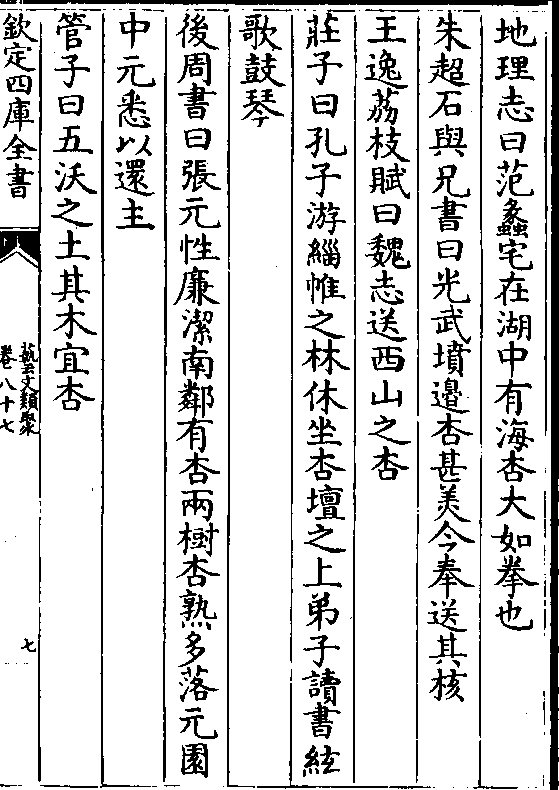 地理志曰范蠡宅在湖中有海杏大如拳也
朱超石與兄書曰光武墳邉杏甚美今奉送其核
王逸荔枝賦曰魏志送西山之杏
莊子曰孔子游緇帷之林休坐杏壇之上弟子讀書絃
歌鼓琴
後周書曰張元性廉潔南鄰有杏兩樹杏熟多落元園
中元悉以還主
管子曰五沃之土其木宜杏
欽定四庫全書
藝文類聚
卷八十七
七